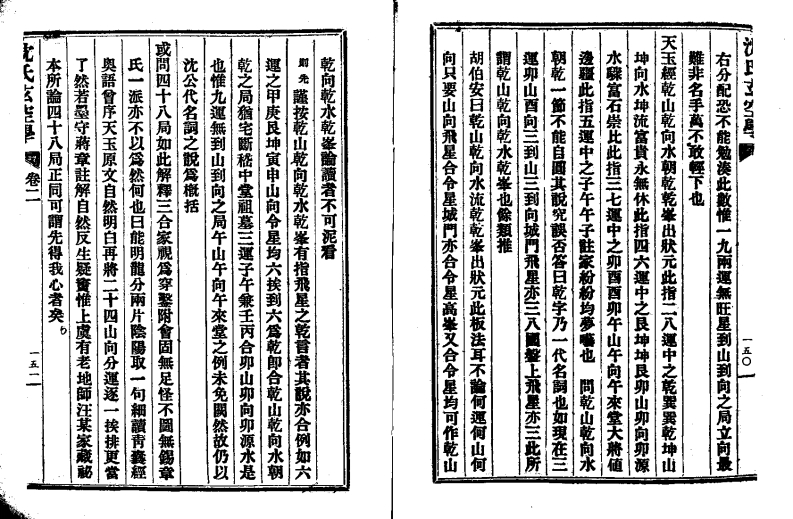 沈氏玄空學
一五〇
右分配恐不能勉湊此數惟一九兩運無旺星到山到向之局立向最
難非名手萬不敢輕下也
天玉經乾山乾向水朝乾乾峯出狀元此指二八運中之乾巽巽乾坤山
坤向水坤流富貴永無休此指四六運中之艮坤坤艮卯山卯向卯源
水驟富石崇比此指三七運中之卯酉酉卯午山午向午來堂大將值
邊疆此指五運中之子午午子註家紛紛均夢囈也 問乾山乾向水
朝乾一節不能自圓其說究誤否答曰乾字乃一代名詞也如現在三
運卯山酉向三到山三到向城門飛星亦三八國盤上飛星亦三此所
謂乾山乾向乾水乾峯也餘類推
胡伯安曰乾山乾向水流乾乾峯出狀元此板法耳不論何運何山何
向只要山向飛星合令星城門亦合令星高峯又合令星均可作乾山
乾向乾水乾峯論讀者不可泥看
則先 謹按乾山乾向乾水乾峯有指飛星之乾言者其說亦合例如六
運之甲庚艮坤寅申山向令星均六挨到六爲乾卽合乾山乾向水朝
乾之局猶宅斷嵊中堂祖墓三運子午兼壬丙合卯山卯向卯源水是
也惟九運無到山到向之局午山午向午來堂之例未免闕然故仍以
沈公代名詞之說爲概括
或問四十八局如此解釋三合家視爲穿鑿附會固無足怪不圖無錫章
氏一派亦不以爲然何也曰能明龍分兩片陰陽取一句細讀靑囊經
與語曾序天玉原文自然明白再將二十四山向分運逐一挨排更當
了然若墨守蔣章註解自然反生疑竇惟上虞有老地師汪某家藏祕
本所論四十八局正同可謂先得我心者矣。
沈氏玄空學
卷二
一五一